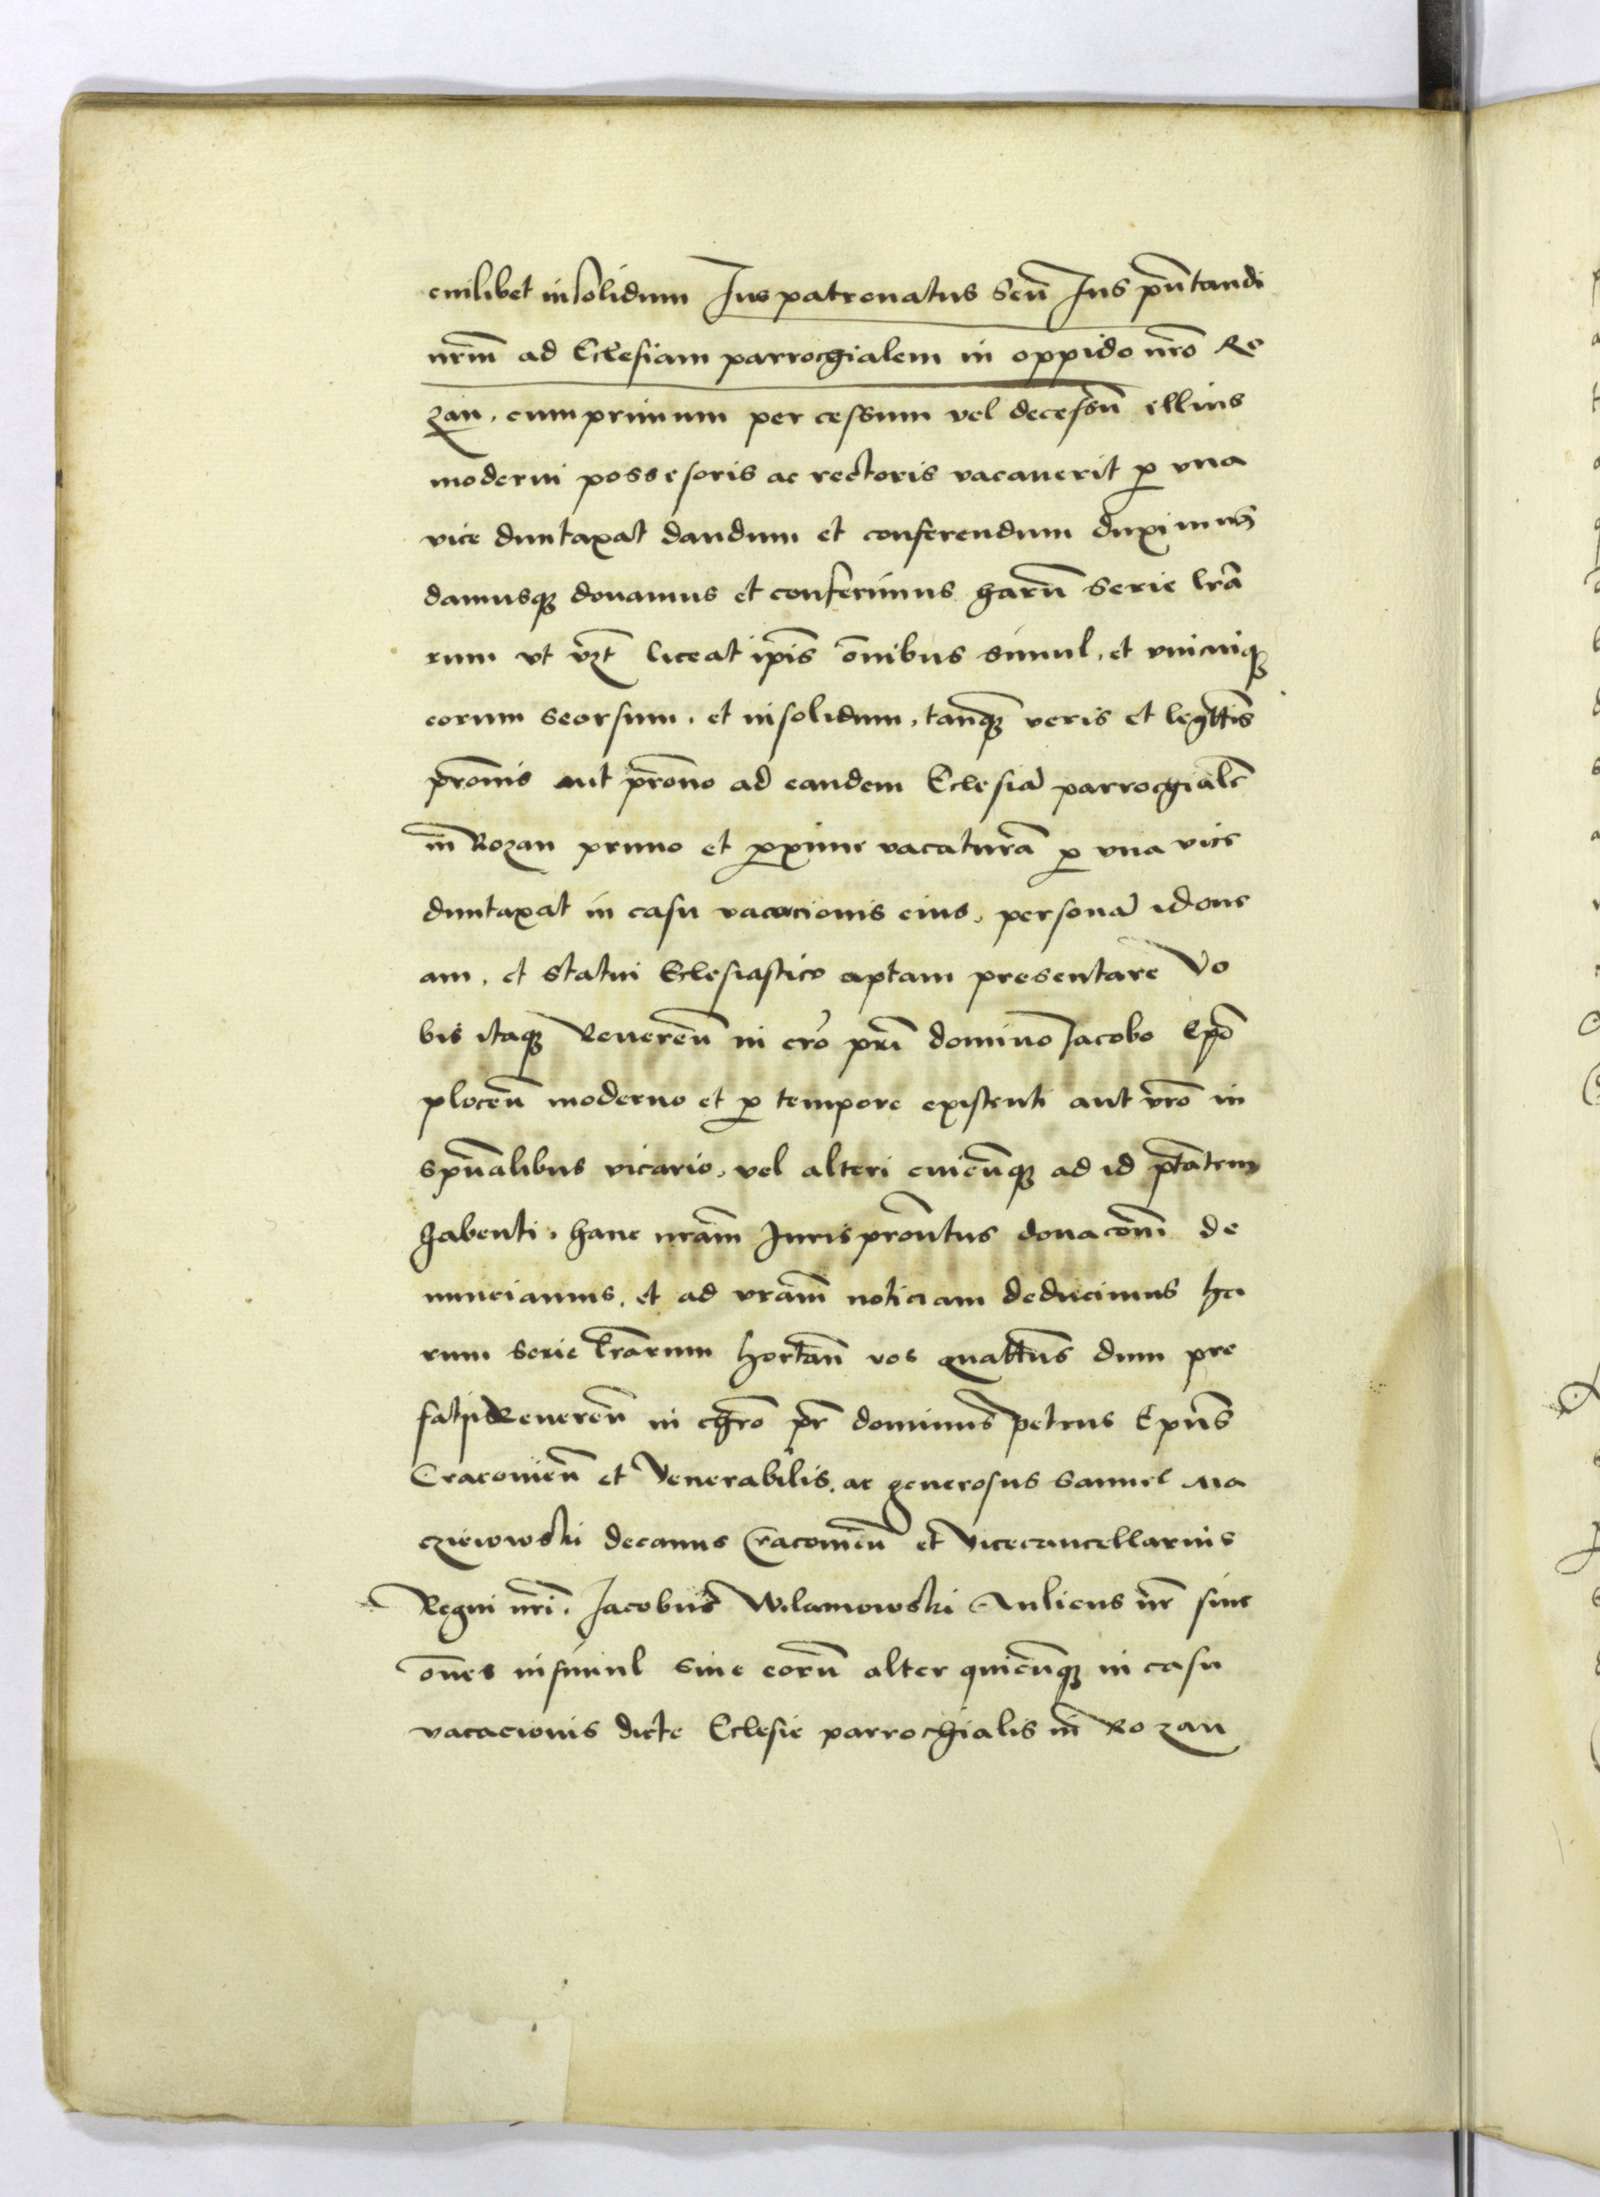 cuilibet insolidum Ius patronatus Seu Ius pñtandi
nrm̃ ad Eclesiam parrochialem in oppido nrõ Ro
zan. cum primum per cessum vel decessũ illius
moderni possesoris ac rectoris vacauerit p una
vice duntaxat dandum et conferendum duximus
damusq donamus et conferimus harũ Serie lrã
rum ut vzt liceat ip̃is om̃nibus simul. et unicuiq
eorum seorsum. et insolidum, tanq̃ veris et legttis
prõnis aut prõno ad eandem Eclesiã parrochialẽ
in Rozan primo et pxime vacaturã p una vice
duntaxat in casu vacacionis eius, personã idone
am, et statui Eclesiastico aptam presentare Vo
bis itaq Reuereñ in cr̃o prĩ domino Iacobo Ep̃o
plocen̄ moderno et p tempore existenti aut vr̃o in
sp̃ualibus vicario, vel alteri cuicũq ad id ptãtem
habenti, hanc nrãm Iuris prõntus donacõm̃ de
nunciamus, et ad vrãm noticiam deducimus ha
rum serie lr̃arum hortañ vos quatt̃us dum pre
fatj Reuereñ in chrõ pr̃ dominus petrus Ep̃us
Cracouieñ et Venerabilis, ac generosus Samuel Ma
cziewowski decanus Cracouieñ et Vicecancellarius
Regni nrĩ. Iacobus Wilamowski Aulicus nr̃ siue
om̃es insimul siue eorũ alter quicũq in casu
vacacionis dicte Eclesie parrochialis in Rozan